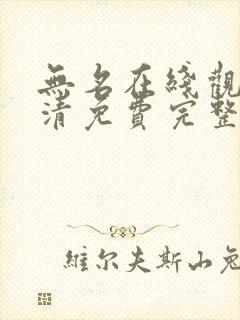 無名在綫觀
清免費完整
維尔夫斯山兔